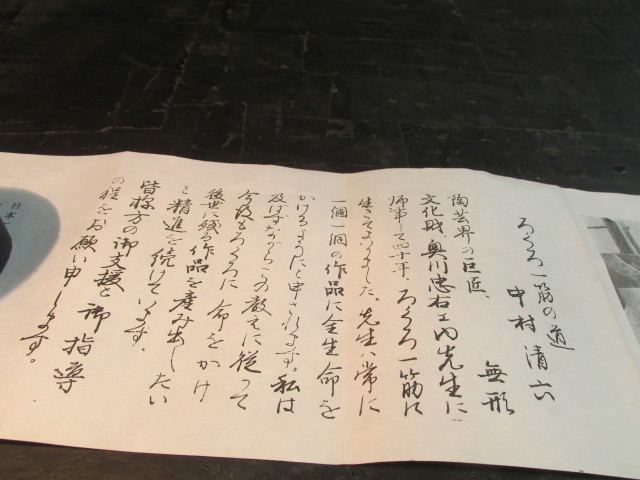 ろくろ一筋の道
中村清六
陶芸界の巨匠、無形
文化財、奥川忠右エ門先生に
師事して四十年、ろくろ一筋に
生きてまいりました。先生ハ常に
一個一個の作品に全生命を
かけるようにと申されます。私は
及ばずながらこの教えに従って
今後もろくろに命をかけ
後世に残る作品を産み出したい
と精進を続けています。
皆様方の御支援と御指導
の程をお願い申します。
日本